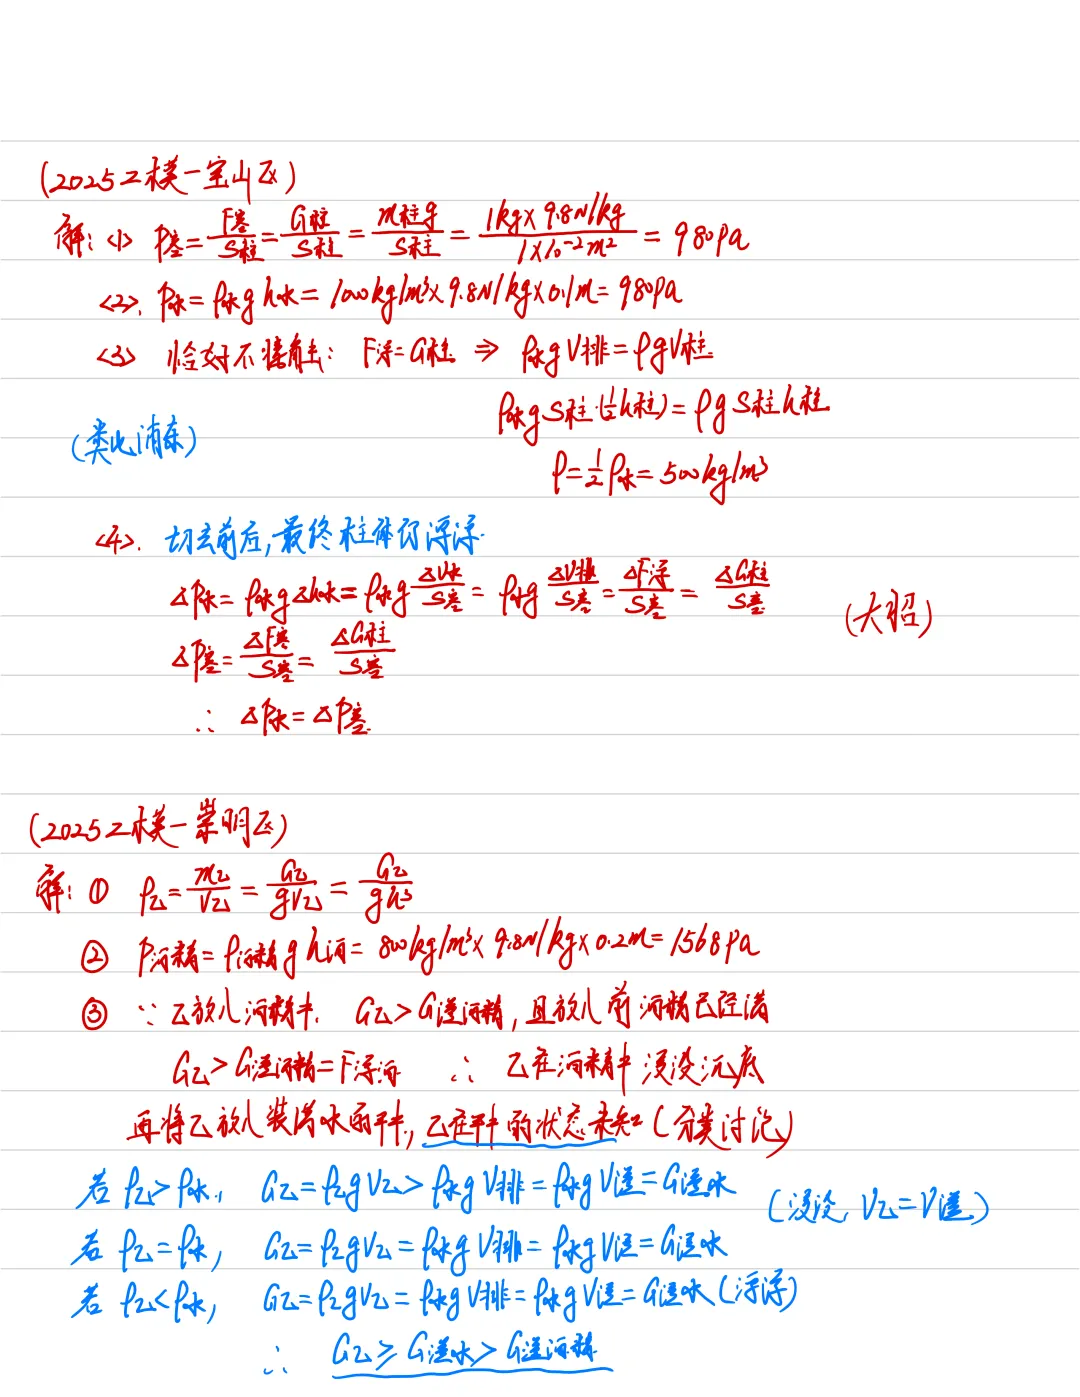 (2025二模一宝山区)
解: <1> P容=F容/S柱=G柱/S柱=m柱g/S柱=1kg×9.8N/kg/1×10⁻²m²=980Pa
<2>. P水=ρ水gh水=1000kg/m³×9.8N/kg×0.1m=980Pa
<3> 恰好不接触: F浮=G柱 ⇒ ρ水gV排=ρgV柱
ρ水gS柱·(½h柱)=ρgS柱h柱
(类比浦东)
ρ=½ρ水=500kg/m³
<4>. 切去前后,最终柱体仍漂浮.
ΔP水=ρ水gΔh水=ρ水gΔV水/S容=ρ水gΔV排/S容=ΔF浮/S容=ΔG柱/S容
(大招)
ΔP容=ΔF容/S容=ΔG柱/S容
∴ ΔP水=ΔP容
(2025二模一崇明区)
解: ① ρ乙=m乙/V乙=G乙/gV乙=G乙/gh³
② P酒精=ρ酒精gh酒=800kg/m³×9.8N/kg×0.2m=1568Pa
③ ∵乙放入酒精中. G乙>G溢酒精,且放入前酒精已经满
G乙>G溢酒精=F浮酒 ∴ 乙在酒精中浸没沉底
再将乙放入装满水的甲中,乙在甲中的状态未知(分类讨论)
若ρ乙>ρ水, G乙=ρ乙gV乙>ρ水gV排=ρ水gV溢=G溢水 (浸没,V乙=V溢)
若ρ乙=ρ水, G乙=ρ乙gV乙=ρ水gV排=ρ水gV溢=G溢水
若ρ乙<ρ水, G乙=ρ乙gV乙=ρ水gV排=ρ水gV溢=G溢水(漂浮)
∴ G乙≥G溢水>G溢酒精